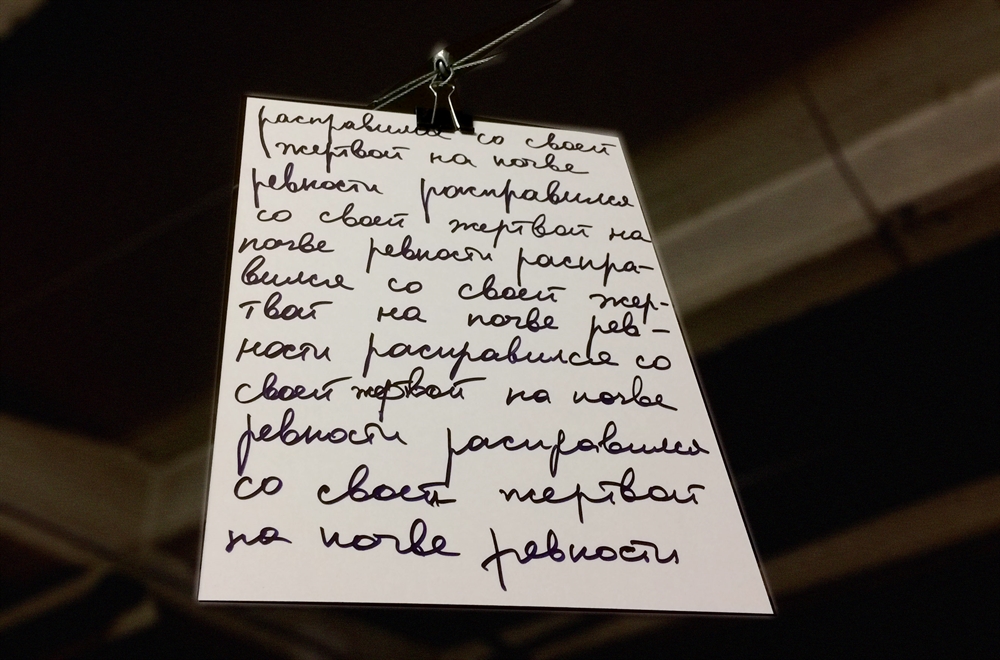 расправился со своей
жертвой на почве
ревности расправился
со своей жертвой на
почве ревности распра-
вился со своей жер-
твой на почве рев-
ности расправился со
своей жертвой на почве
ревности расправился
со своей жертвой
на почве ревности